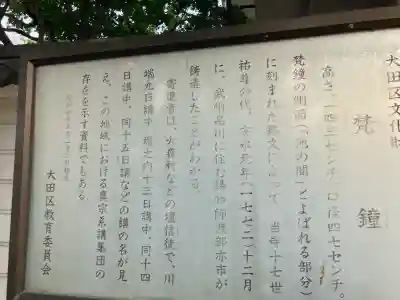 大田区文化財
梵鐘
高さ一四三センチ、口径四七センチ。
梵鐘の側面(池の間とよばれる部分)
に刻まれた銘文によって、当寺十七世
祐尊の代、安永元年(一七七二)十二月
に、武州品川に住む鋳物師
鋳造したことがわかる。
寄進者は、大森村などの壇信徒で、川
端九日講中、堀之内十三日講中、同十四
日講中、同十五日講などの講の名が見
え、この地域における真宗系講集団の
存在を示す資料でもある。
大田区教育委員会